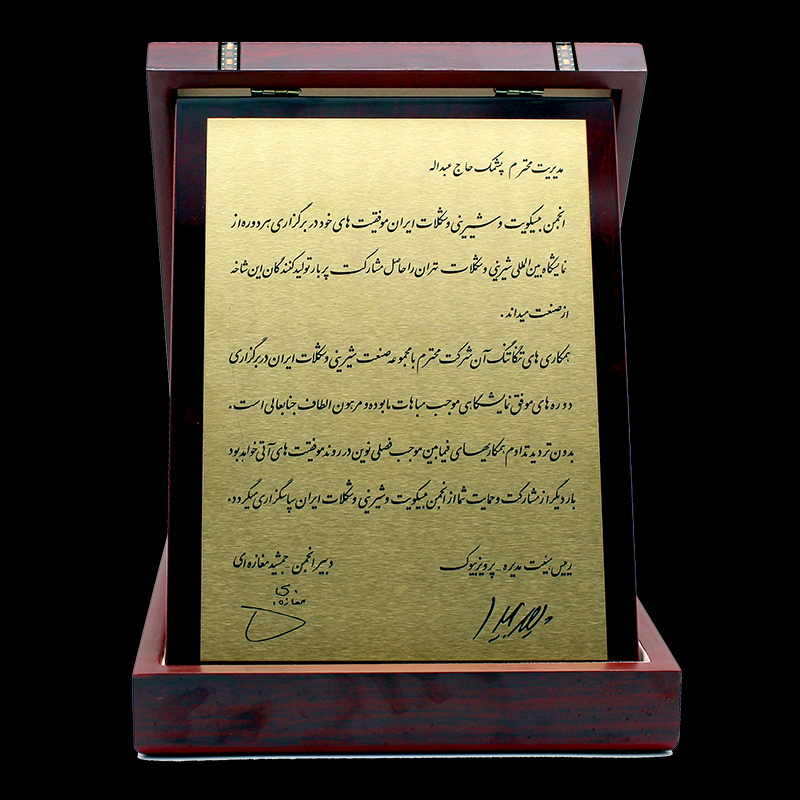 مدیریت محترم پشمک حاج عبداله
انجمن بیسکویت و شیرینی و شکلات ایران موفقیت های خود در برگزاری هر دوره از
نمایشگاه بین المللی شیرینی و شکلات تهران را حاصل مشارکت پربار تولید کنندگان این شاخه
از صنعت میداند .
همکاری های تنگاتنگ آن شرکت محترم با مجموعه صنعت شیرینی و شکلات ایران در برگزاری
دوره های موفق نمایشگاهی موجب مباهات ما بوده و مرهون الطاف جنابعالی است .
بدون تردید تداوم همکاریهای فیمابین موجب فصلی نوین در روند موفقیت های آتی خواهد بود
بار دیگر از مشارکت و حمایت شما از انجمن بیسکویت و شیرینی و شکلات ایران سپاسگزاری میگردد.
رییس هیئت مدیره _ پرویز بیوک
دبیر انجمن جمشید مغازه ای